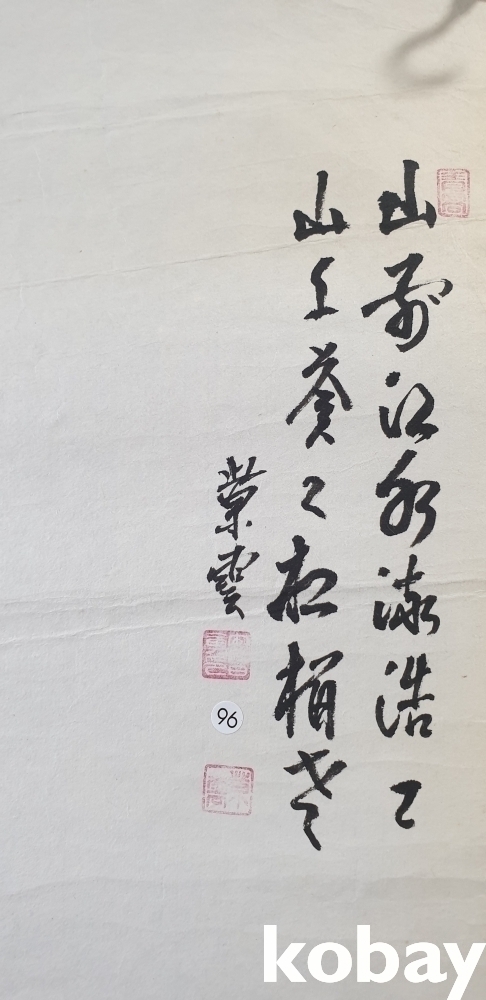 山前江水流浩〻
山上蒼〻松栢老
96
kobay